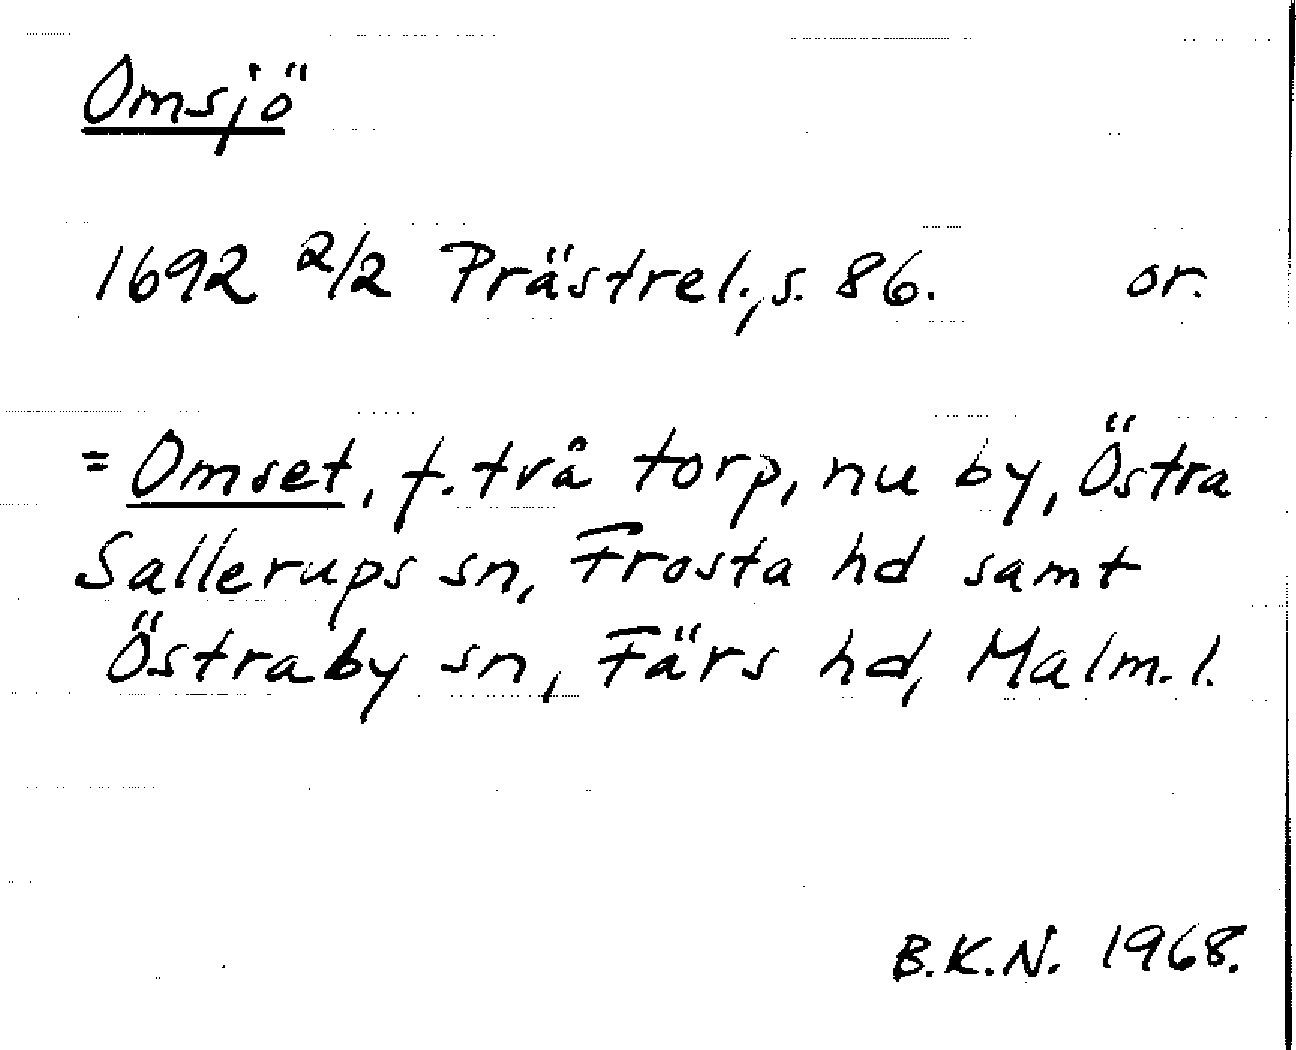 Omsjö
1692 2/2 Prästrel., s. 86. or.
= Omset, f. två torp, nu by, Östra
Sallerups sn, Frosta hd samt
Östraby sn, Färs hd, Malm. l.
B.K.N. 1968.